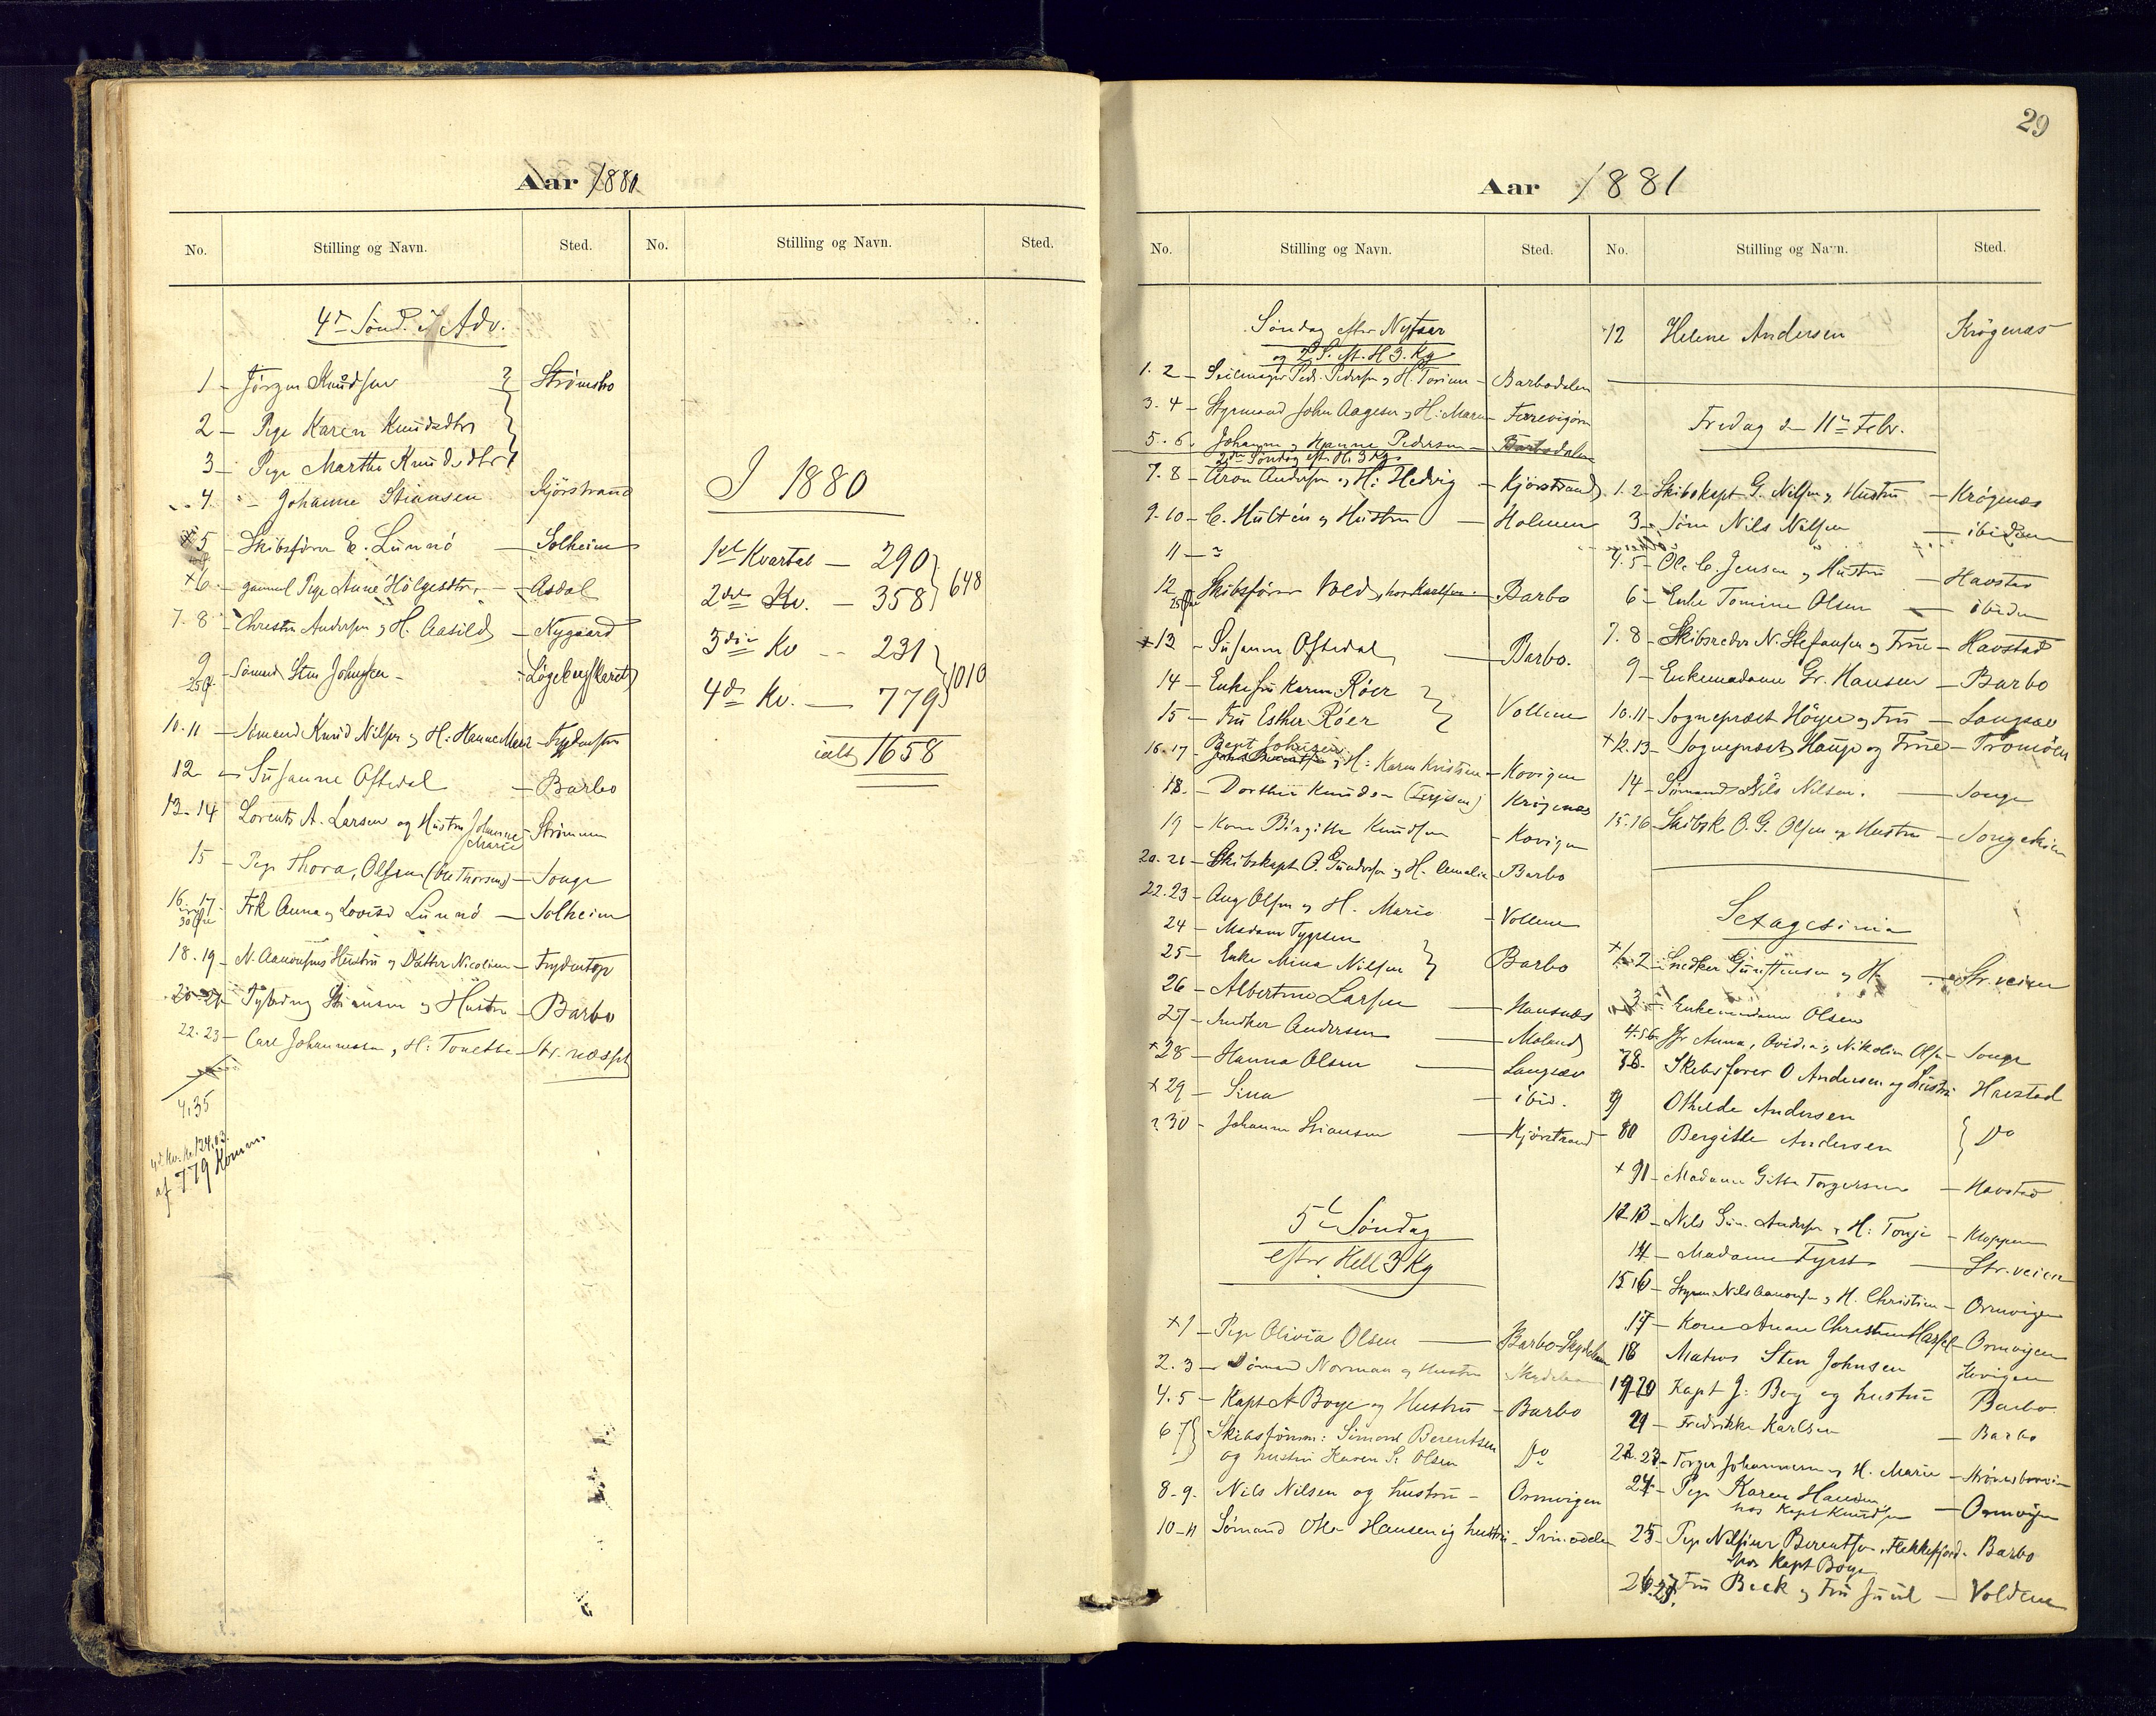 Aar 1880
No. Stilling og Navn. Sted. No. Stilling og Navn. Sted.
4de Sønd. i Adv.
1 - Jörgen Knudsen Strömsbo
2 - Pige Karen Knudsdtr
3 - Pige Marthe Knudsdtr
4. " - Johanne Stiansen Kjörstrand
5 - Skibsförer E. Lunnö - Solheim
+6 - gammel Pige Anne Holgesdtr. - Asdal
7. 8 - Christen Andersen og H. Aasild - Nygaard
9 - Sömand Sten Johnsen -
10. 11 - Sömand Knud Nilsen og H: Hanne Marie -
12 - Susanne Oftedal - Barbo
13-14 Lorents A. Larsen og Hustru Johanne Marie - Strömmen
15 - Pige Thora Olsen (Ole Thorsens) - Songe
16. 17. Frk Anna og Lovise Lunnö - Solheim
18. 19 - N. Aanonsens Hustru og Datter Nicoline -
20-21 Stiansen og Hustru - Barbo
22. 23 - Carl Johannesen og H: Tonette -
4,35
4d. Kv. Kr 124,03.
af 779 Komm.
I 1880
1ste Kvartal - 290
2det Kv. - 358 } 648
3die Kv - 231
4de Kv. - 779 } 1010
ialt 1658
29
Aar 1881
No. Stilling og Navn. Sted. No. Stilling og Navn. Sted.
Söndag efter Nytaar
og 2 S. eft. H 3. Kg
1. 2 - Seilmager Peder Pedersen og H. - Barbodalen
3. 4 - Styrmand John Aagesen og H: Maren -
5. 6. Johannes og Hanne Pedersen - Barbodalen
2den Söndag eft. H. 3 Kg
7. 8 - Aron Andersen og H: Hedvig - Kjörstrand
9. 10 - C. Hultén og Hustru - Holmen
11 - ?
12 Skibsförer Vold, hos Karlsen - Barbo
25 Öre
+13 - Susanne Oftedal - Barbo.
14 - Enkefru Karen Röer
15 - Fru Esther Röer Vollene
16. 17 - Bent Johnsen og H: Karen Kristine - Kovigen
18. - Dorthea Knudsen Krögenæs
19 - Kone Birgitte Knudsen - Kovigen
20. 21 - Skibskapt O. Gundersen og H. Amalie - Barbo
22. 23 - Aug Olsen og H. Marie - Vollene
24 - Madam
25 - Enke Mina Nilsen Barbo
26 - Albertine Larsen -
27 - Snedker Andersen - Moland
+28 - Hanna Olsen - Langsæv
+29 - Sina - ibid.
?30 - Johanne Stiansen - Kjörstrand
5te Söndag
efter Hell 3 Kg
+1 - Pige Olivia Olsen - Barbo
2. 3 - Sömand Norman og Hustru
4. 5 - Kapt A Boye og Hustru - Barbo
6 7} Skibsförer: Simon Berentsen
og hustru Karen S. Olsen Do
8-9. Nils Nilsen og hustru - Ormvigen
10-11 Sömand Ole Hansen og hustru -
12 Helene Andersen Krögenæs
Fredag d 11te Febr.
1. 2 - Skibskapt G. Nilsen og Hustru - Krögenæs
3 - Sön Nils Nilsen - ibidem
4. 5 - Ole C. Jensen og Hustru - Havstad
6 - Enke Tomine Olsen - ibidem
7. 8 - Skibsreder N. Stefansen og Frue - Havstad
9 - Enkemadame Gr. Hansen - Barbo
10. 11 - Sognepræst Höyer og Fru - Langsæv
+12. 13 - Sogneprest Hauge og Frue - Tromöen
14 - Sömand Nils Nilsen. - Songe
15. 16 - Skibsk O. G. Olsen og Hustru -
Sexagesima
+1. 2 - Snedker og H. - Str. veien
3 - Enkemadame Olsen
4. 5 6 - Anna, Ovidia og Nikoline Olsen - Songe
7 8. Skibsförer O Andersen og Hustru Havstad
9 Othilde Andersen
10 Bergitte Andersen } Do
+11 - Madame Gitte Torgersen - Havstad
12 13 - Nils Andersen og H: Tonje - Kloppen
14 - Madame - Str. veien
15 16 - Styrm Nils Aanonsen og H. Christine - Ormvigen
17 - Kone Anne Christine - Ormvigen
18 Matros Sten Johnsen Kovigen
19 20 Kapt J: Boy og hustru Barbo
21 - Fredrikke Karlsen - Barbo
22. 23 - Torger Johannesen og H. Marie -
24 - Pige Karen Hansen
hos Kapt Knudsen - Ormvigen
25 - Pige Berentsen, Flekkefjord - Barbo
hos Kapt Boye
26. 27. Fru Beck og Fru Juul - Voldene